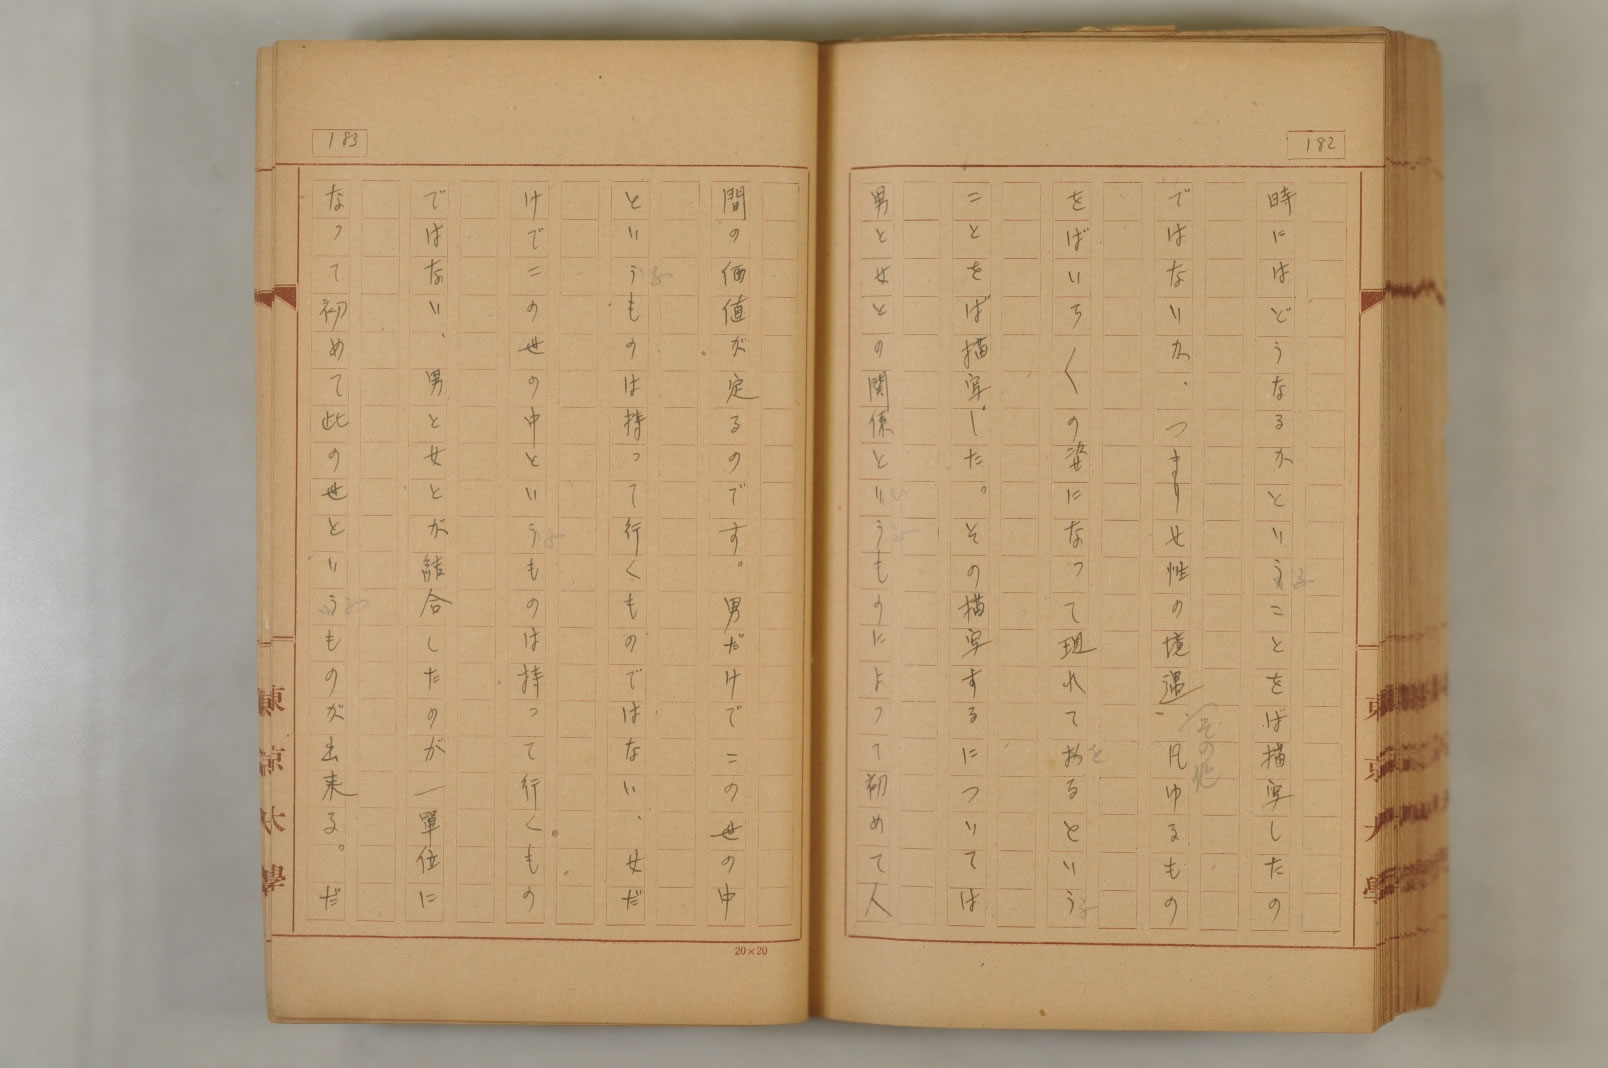 182
時にはどうなるかということをば描写したの
ではないか、つまり女性の境遇、凡ゆるもの
その他
をばいろ〱の姿になって現れておるという
を
ことをば描写した。その描写するについては
男と女との関係というものによって初めて人
東京大學
183
間の価値が定るのです。男だけでこの世の中
というものは持って行くものではない、女だ
けでこの世の中というものは持って行くもの
ではない、男と女とが結合したのが一單位に
なって初めて此の世というものが出来る。だ
20×20
東京大學